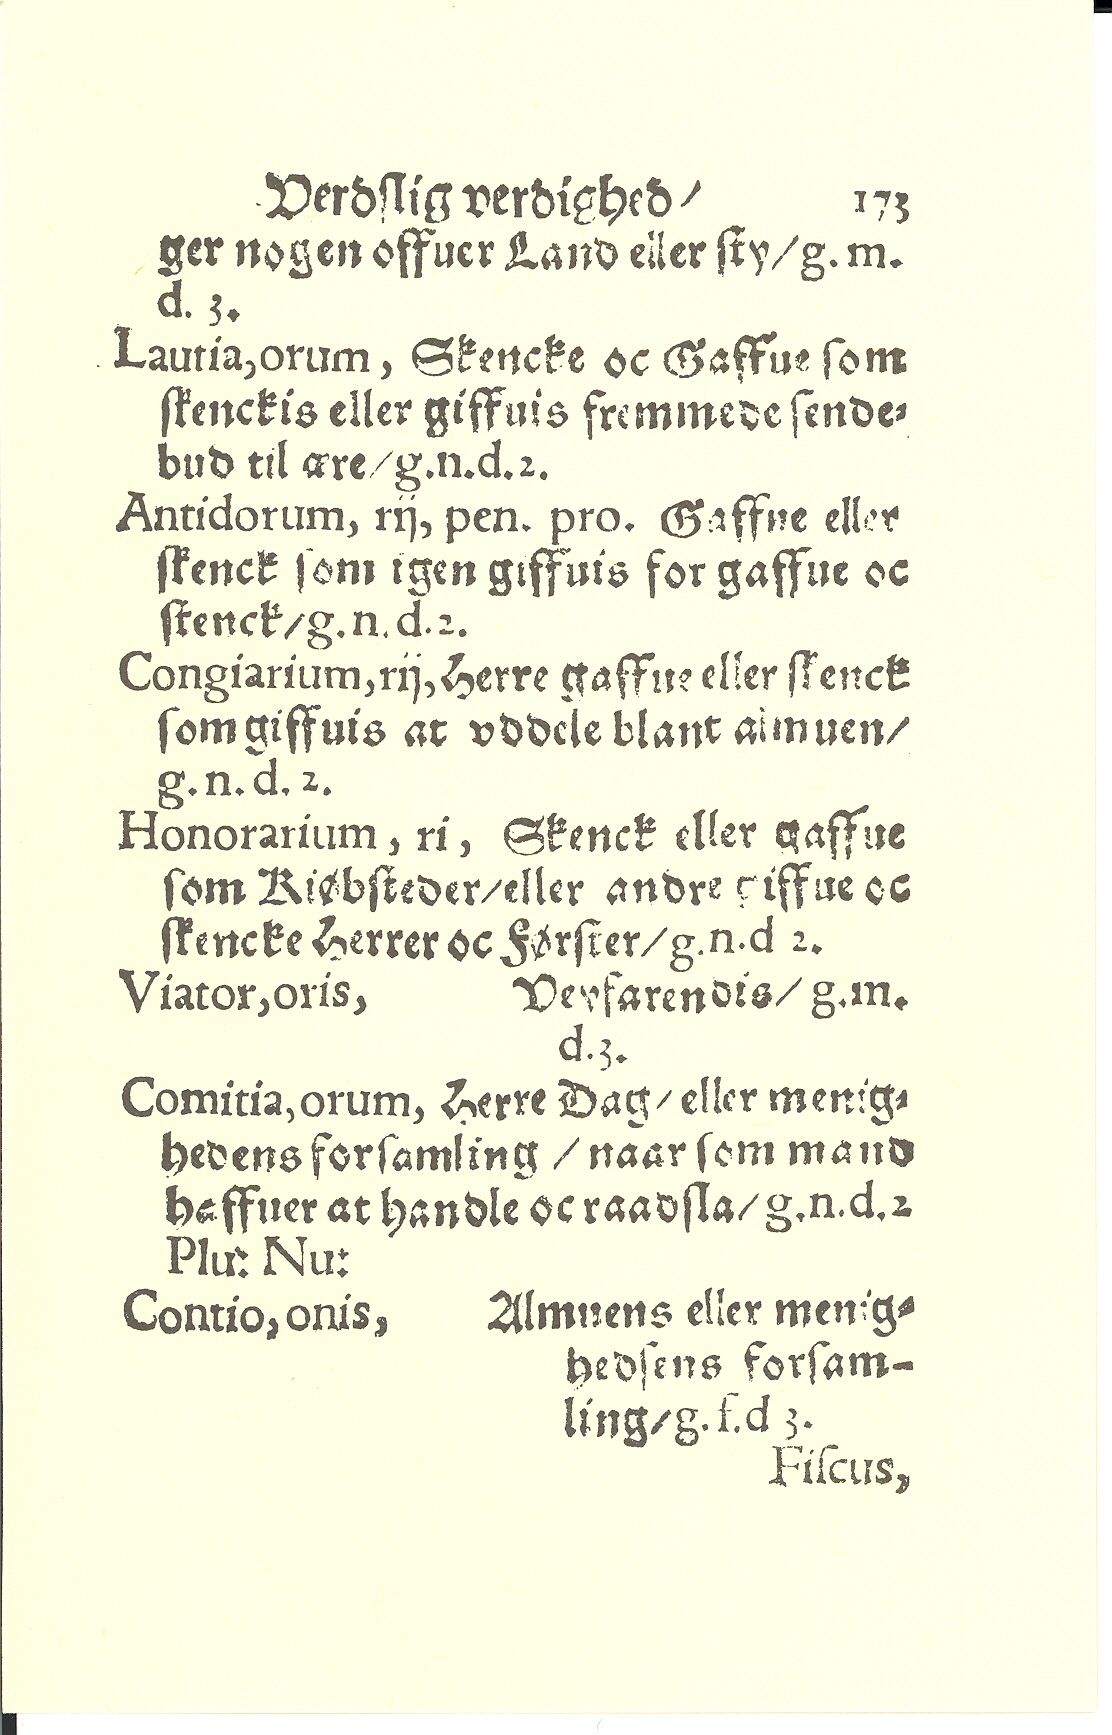 Verdſlig verdighed/ 173
ger nogen offuer Land eller ſty/g. m.
d. 3.
Lautia,orum, Skencke oc Gaffue ſom
ſkenckis eller giffuis fremmede ſende⸗
bud til ære/g.n.d.2.
Antidorum, rij, pen. pro. Gaffue eller
ſkenck ſom igen giffuis for gaffue oc
ſkenck/g.n.d.2.
Congiarium,rij,Herre gaffue eller ſkenck
ſom giffuis at vddele blant almuen/
g.n.d.2.
Honorarium, ri, Skenck eller gaffue
ſom Kiøbſteder/eller andre giffue oc
ſkencke Herrer oc Førſter/g.n.d 2.
Viator,oris, Veyfarendis/ g.m.
d.3.
Comitia,orum, Herre Dag/eller menig⸗
hedens forſamling /naar ſom mand
haffuer at handle oc raadſla/g.n.d.2
Plu: Nu:
Contio,onis, Almuens eller menig⸗
hedſens forſam-
ling/g.f.d 3.
Fiſcus,